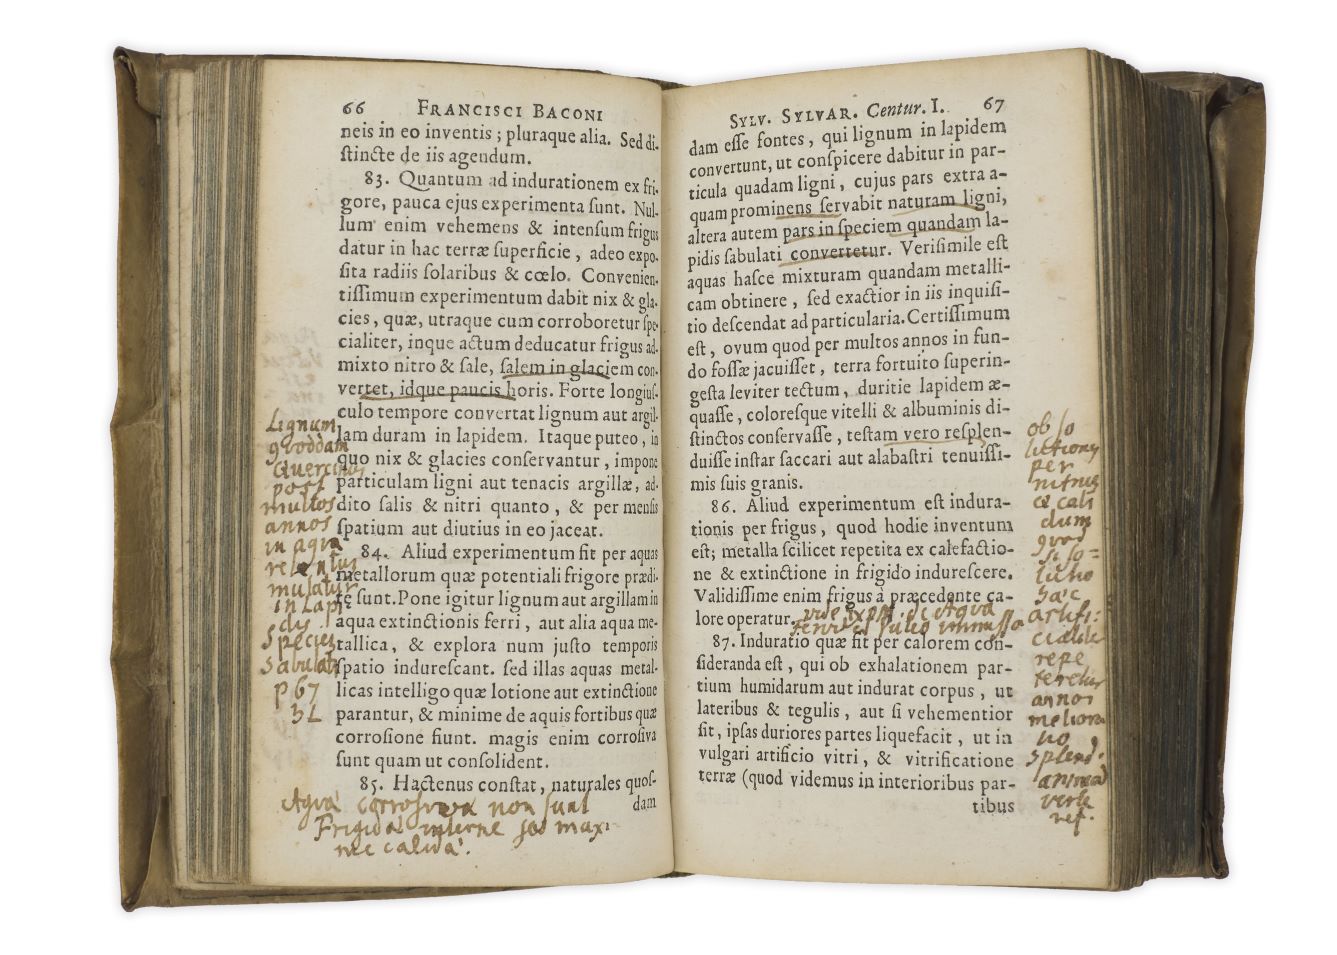 66 FRANCISCI BACONI
neis in eo inventis ; pluraque alia. Sed di-
stincte de iis agendum.
83. Quantum ad indurationem ex fri-
gore, pauca ejus experimenta sunt. Nul-
lum enim vehemens & intensum frigus
datur in hac terræ superficie, adeo expo-
sita radiis solaribus & cœlo. Convenien-
tissimum experimentum dabit nix & gla-
cies, quæ, utraque cum corroboretur spe-
cialiter, inque actum deducatur frigus ad-
mixto nitro & sale, salem in glaciem con-
vertet, idque paucis horis. Forte longius-
culo tempore convertat lignum aut argil-
lam duram in lapidem. Itaque puteo, in
quo nix & glacies conservantur, impone
particulam ligni aut tenacis argillæ, ad-
dito salis & nitri quanto, & per mensis
spatium aut diutius in eo jaceat.
84. Aliud experimentum fit per aquas
metallorum quæ potentiali frigore prædi-
tę sunt. Pone igitur lignum aut argillam in
aqua extinctionis ferri, aut alia aqua me-
tallica, & explora num justo temporis
spatio indurescant. sed illas aquas metal-
licas intelligo quæ lotione aut extinctione
parantur, & minime de aquis fortibus quæ
corrosione fiunt. magis enim corrosiva
sunt quam ut consolident.
85. Hactenus constat, naturales quos-
dam
Lignum
quoddam
Quercinum
post
multos
annos
in aqua
mutatur
in lapi
dis
species
sabulati
p 67
Aqua corrosiva non sunt
Frigida interne sed maxi
me calida.
SYLV. SYLVAR. Centur. I. 67
dam esse fontes, qui lignum in lapidem
convertunt, ut conspicere dabitur in par-
ticula quadam ligni, cujus pars extra a-
quam prominens servabit naturam ligni,
altera autem pars in speciem quandam la-
pidis sabulati convertetur. Verisimile est
aquas hasce mixturam quandam metalli-
cam obtinere, sed exactior in iis inquisi-
tio descendat ad particularia. Certissimum
est, ovum quod per multos annos in fun-
do fossæ jacuisset, terra fortuito superin-
gesta leviter tectum, duritie lapidem æ-
quasse, coloresque vitelli & albuminis di-
stinctos conservasse, testam vero resplen-
duisse instar saccari aut alabastri tenuissi-
mis suis granis.
86. Aliud experimentum est indura-
tionis per frigus, quod hodie inventum
est; metalla scilicet repetita ex calefactio-
ne & extinctione in frigido indurescere.
Validissime enim frigus à præcedente ca-
lore operatur.
87. Induratio quæ fit per calorem con-
sideranda est, qui ob exhalationem par-
tium humidarum aut indurat corpus, ut
lateribus & tegulis, aut si vehementior
sit, ipsas duriores partes liquefacit, ut in
vulgari artificio vitri, & vitrificatione
terræ (quod videmus in interioribus par-
tibus
vide exp. de Aqua
ob so
lutionem
per
nitrum
cali
dum
quod
si so-
litio
hæc
artifi-
cialiter
repe
teretur
annon
meliora
splend